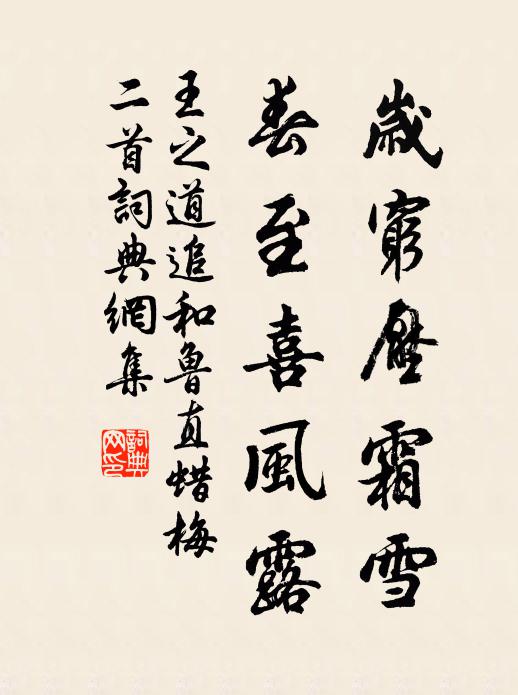 歲窮壓霜雪
春至喜風露
王之道追和魯直蜡梅
二首詞典網集
詞典
网印